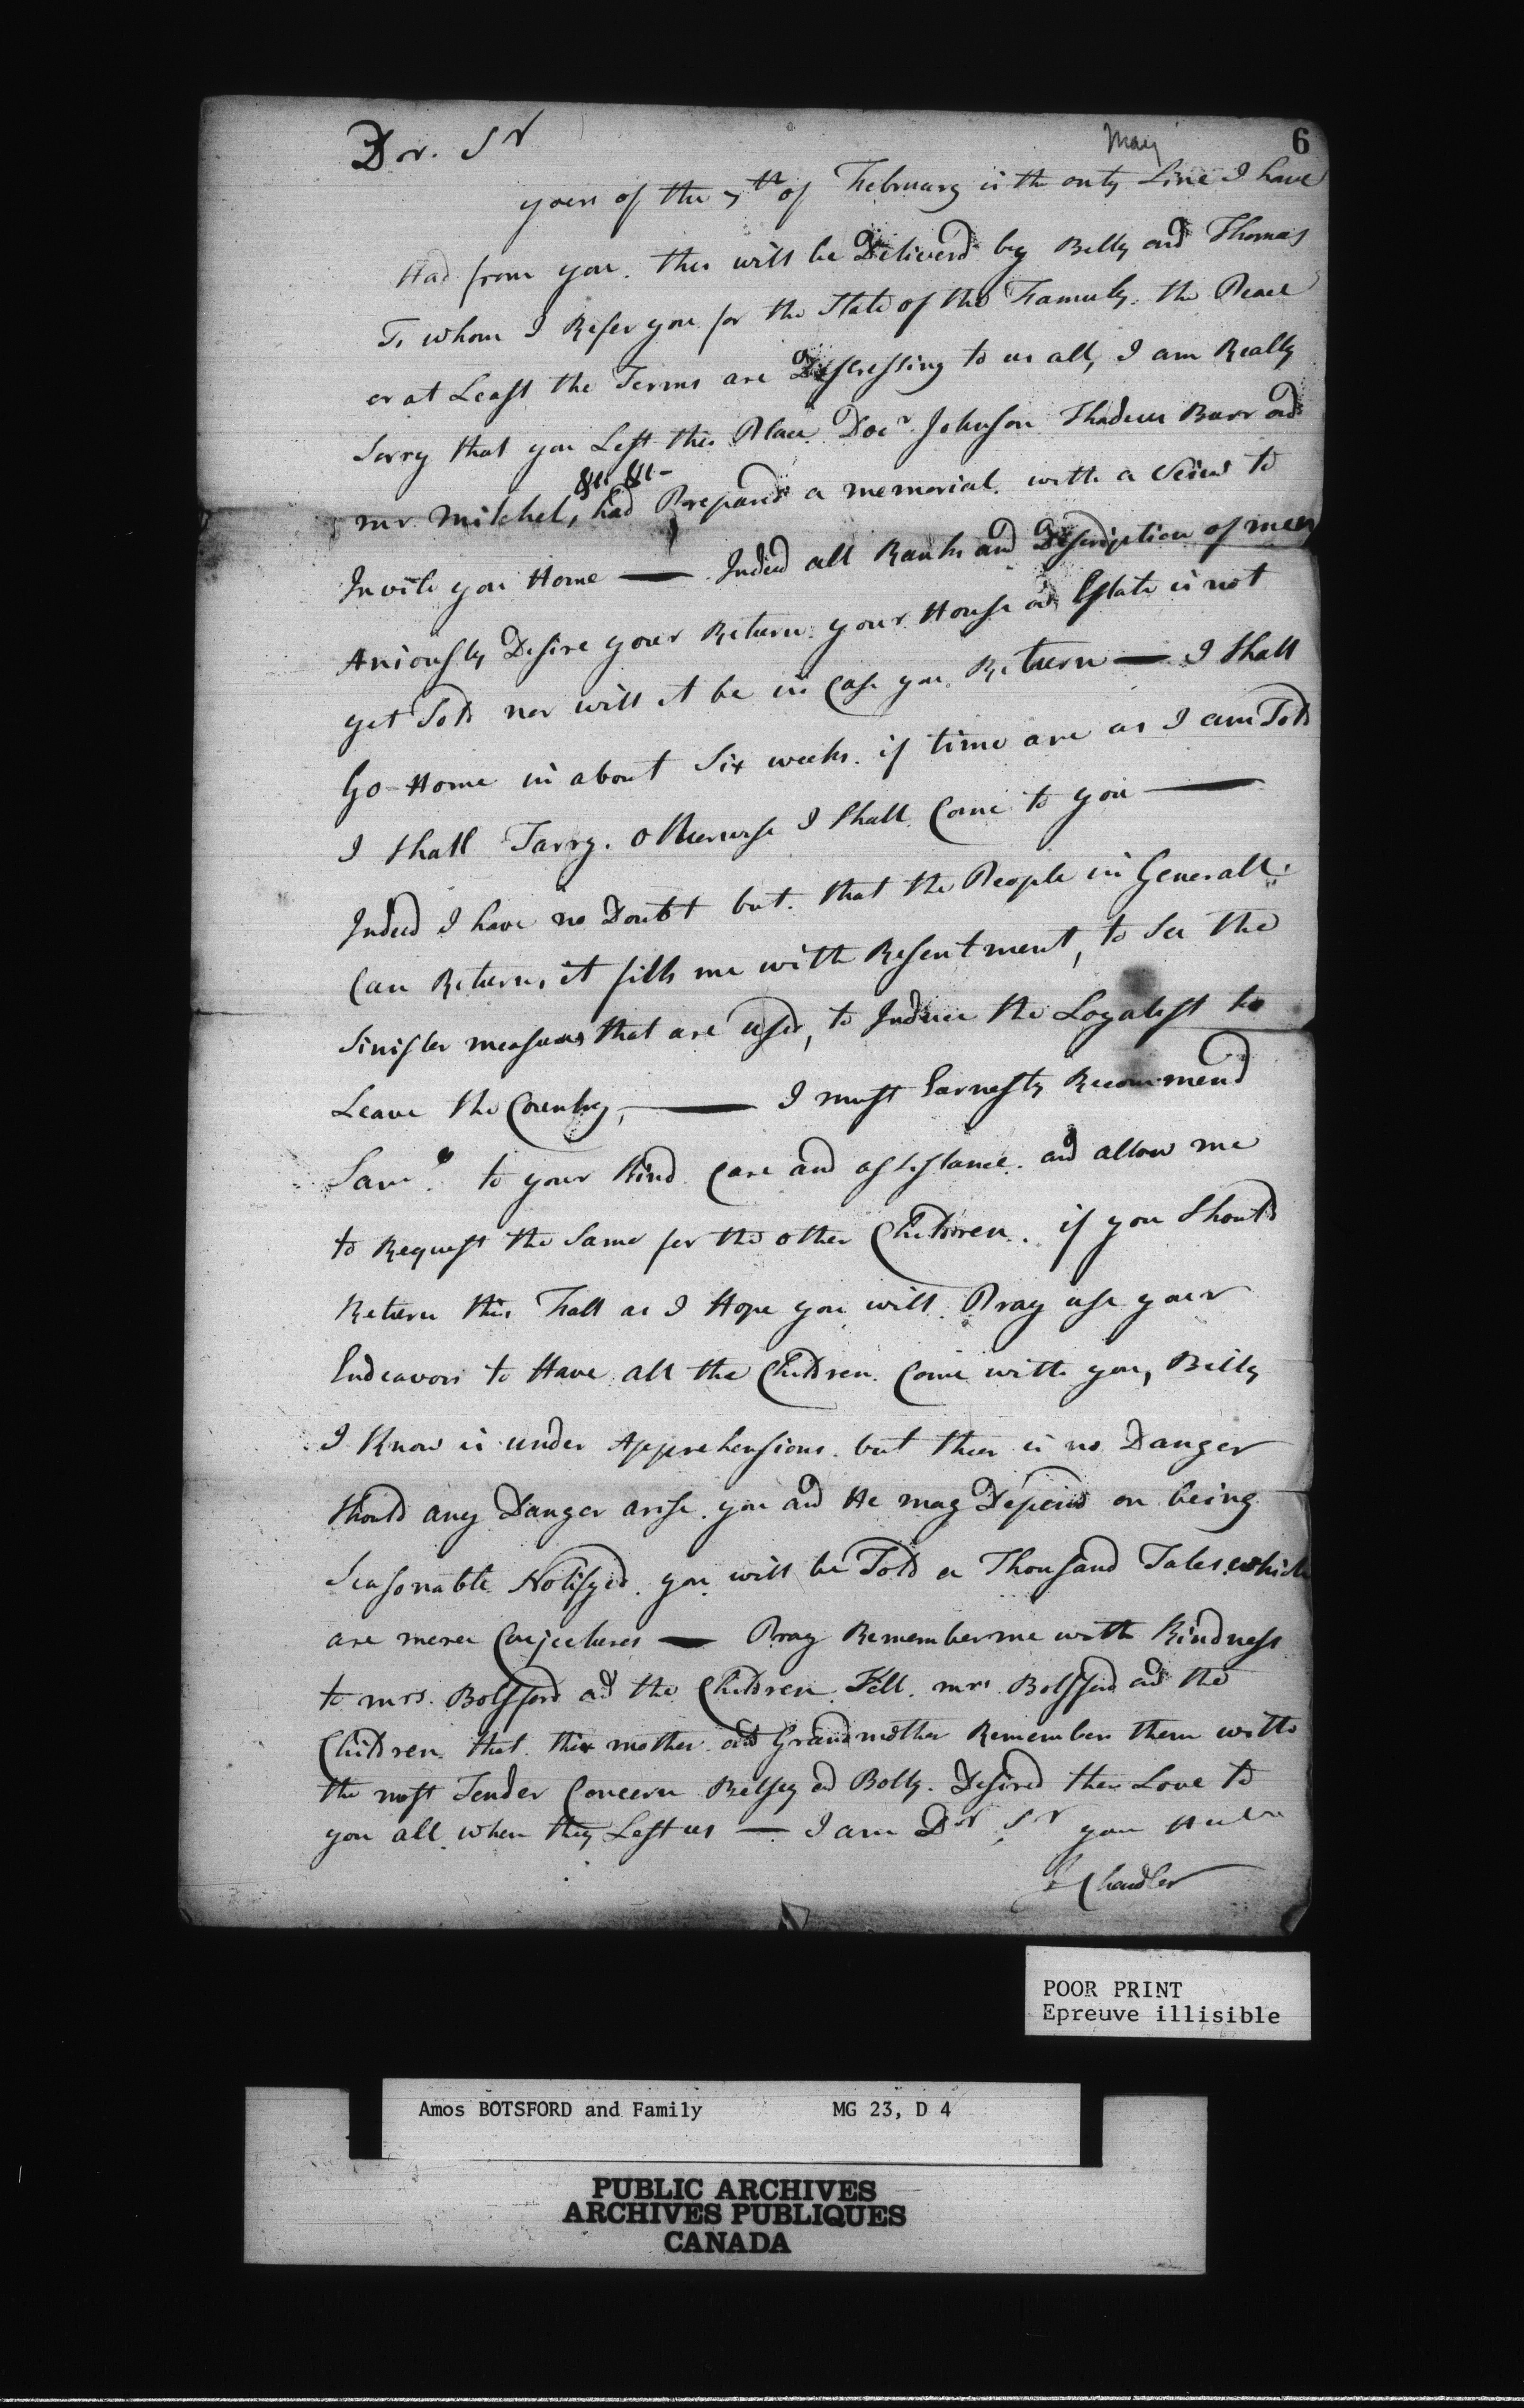 May
6
Dr. Sr
yours of the 7th of February is the only Line I have
Had from you. this will be Deliverd by Billy and Thomas
To whom I Refer you for the State of the Famuly. the Peace
or at Least the Terms are Distressing to us all, I am Really
Sorry that you Left this Place. Docr Johnson Thadeus Burr and
mr Mitchel, &c &c- had Prepared a memorial. with a View to
Invite you Home — Indeed all Ranks and Description of men
Aniously Desire your Return. your House and Estate is not
yet Sold nor will it be in Case you Return — I shall
Go Home in about Six weeks. if time are as I am Told
I shall Tarry. Otherwise I shall Come to you —
Indeed I have no Doubt but. that the People in Generall.
Can Return, it fills me with Resentment, to See the
Sinister measures that are used, to Induce the Loyalist to
Leave the Country, — I must Earnestly Recommend
Saml. to your Kind Care and assistance. and allow me
to Request the Same for the other Children. if you Should
Return this Fall as I Hope you will. Pray use your
Endeavors to Have all the Children. Come with you, Billy
I Know is under Apprehensions. but ther is no Danger
Should any Danger arise. you and He may Depend on being
Seasonable Notifyed. you will be Told a Thousand Tales. which
are mere Conjectures — Pray Remember me with Kindness
to mrs. Botsford and the Children. Tell. mrs Botsford and the
Children. that. thir mother. and Grandmother Remember them with
the most Tender Concern Betsey and Bolly. Desired their Love to
you all when they Left us — I am Dr Sr your
J Chandler
POOR PRINT
Epreuve illisible
Amos BOTSFORD and Family MG 23, D 4
PUBLIC ARCHIVES
ARCHIVES PUBLIQUES
CANADA